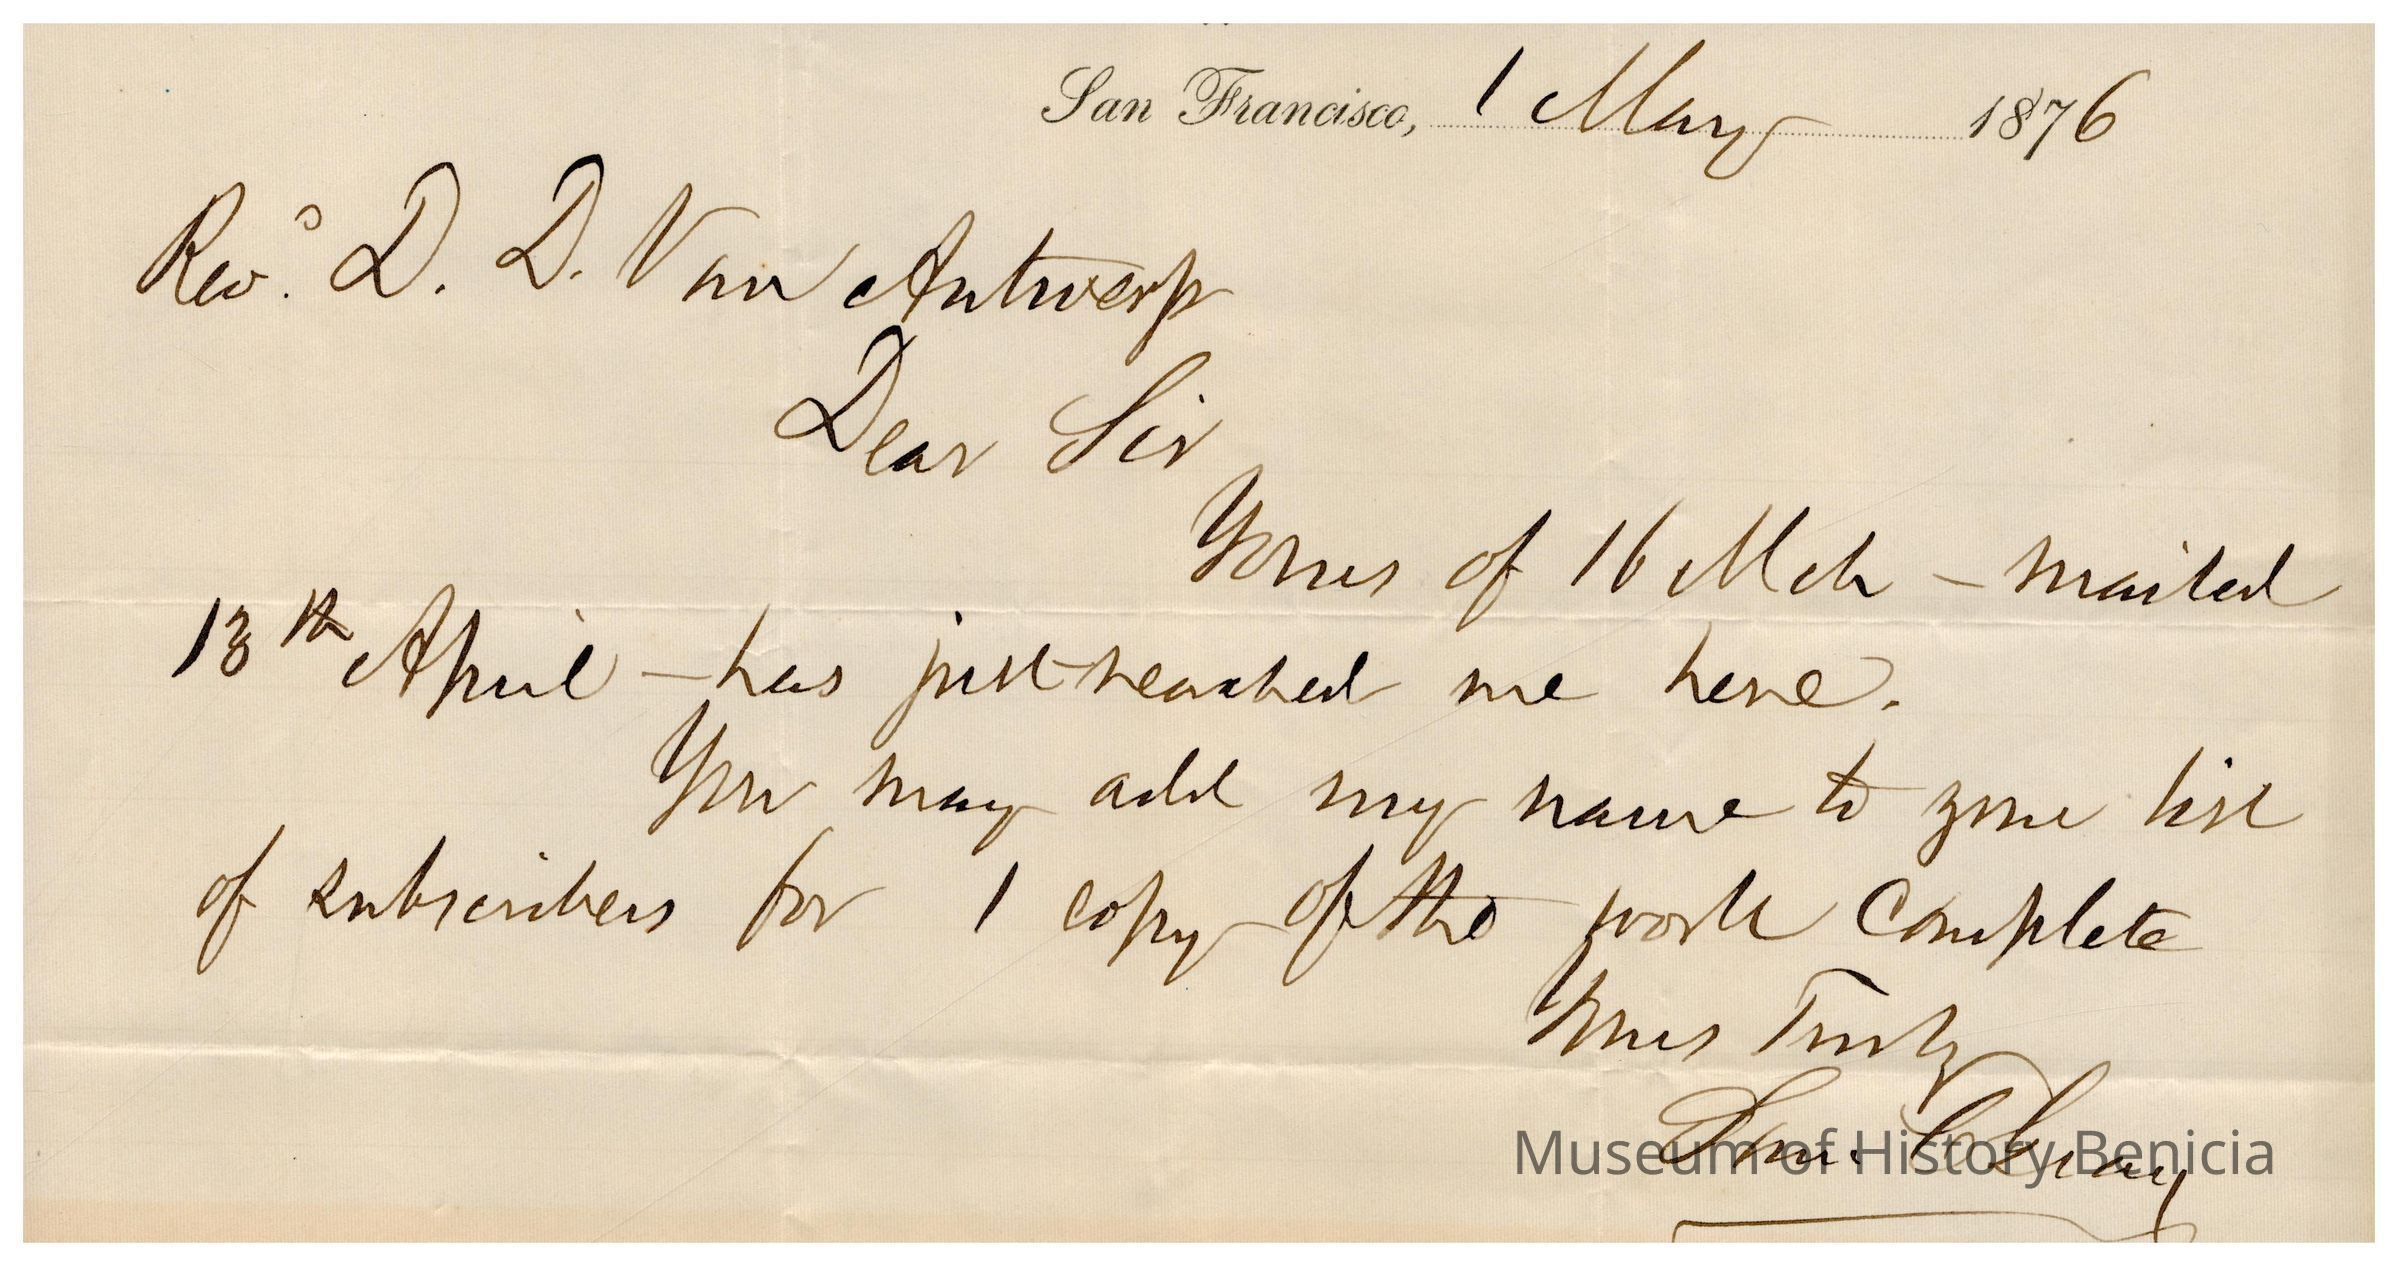 San Francisco, 1 May 1876
Rev.d D. D. Van Antwerp
Dear Sir
Yours of 16 Mch - mailed
13th April - has just reached me here.
You may add my name to your list
of subscribers for 1 copy of the work Complete
Yours Truly
Gray
Museum of History Benicia